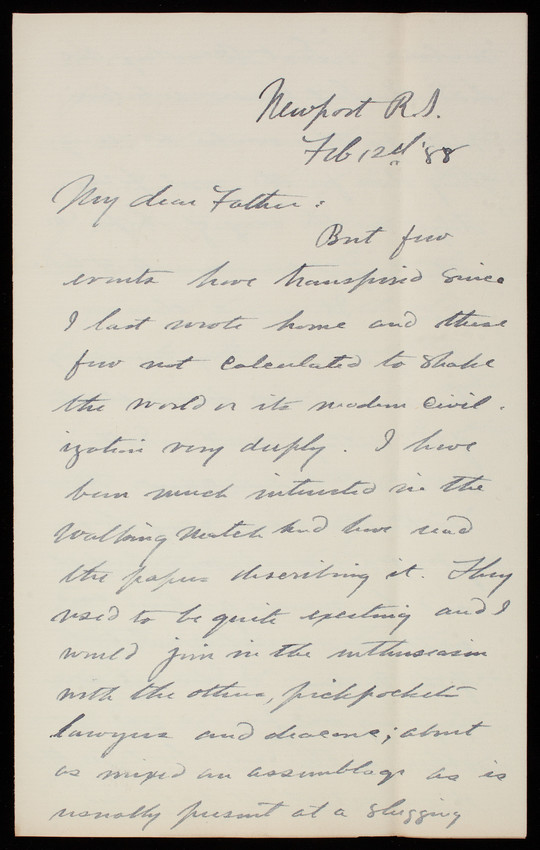 Newport R.I.
Feb 12th '88
My dear Father:
But few
events have transpired since
I last wrote home and these
few not calculated to shake
the world or its modern civil-
ization very deeply. I have
been much interested in the
walking match and have read
the papers describing it. They
used to be quite exciting and I
would join in the enthusiasm
with the others, pickpockets
lawyers and deacons; about
as mixed an assemblage as is
usually present at a slugging